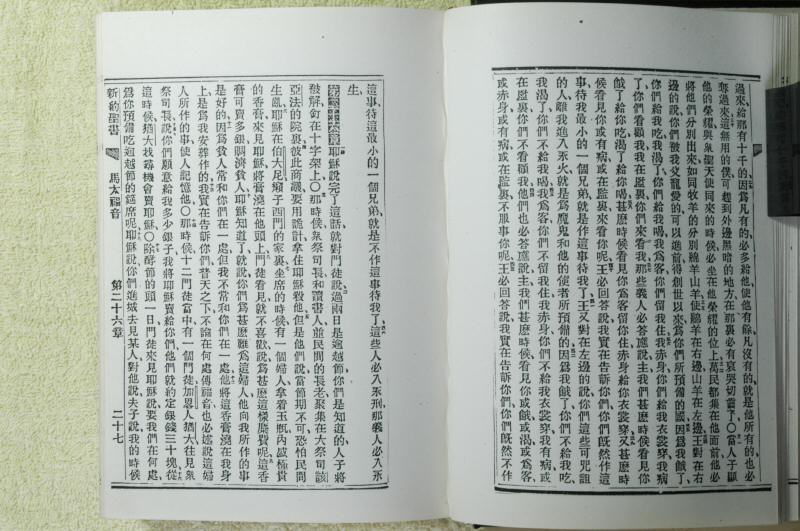 過來給那有十千的因爲凡有的必多給他使他有餘凡沒有的就是他所有的也必
奪過來這無用的僕可趕到外邊黑暗的地方在那裏必有哀哭切齒了○當人子顯
他的榮耀與衆聖天使同來的時候必坐在他榮耀的位上萬民都集在他面前他必
將他們分別出來如同牧羊的分別綿羊山羊在右邊山羊在左邊王對在右
邊的說你們被我父寵愛的可以進前得創世以來爲你們所預備的國因爲我餓了
你們給我吃我渴了你們給我喝我爲客你們留住我赤身你們給我衣裳穿我病
了你們看顧我我在監裏你們來看我那些義人必答應說主我們甚麽時候看見你
餓了給你吃渴了給你喝甚麽時候看見你爲客留你住赤身給你衣裳穿又甚麽時
候看見你或病或在監裏來看你呢王必回答說我實在告訴你們你們旣然作這
事待我最小的一個兄弟就是作這事待我了王又對在左邊的說你們這些可咒詛
的人離我進入永火就是爲魔鬼和他的使者所預備的因爲我餓了你們不給我吃
我渴了你們不給我喝我爲客你們不留我住我赤身你們不給我衣裳穿我有病或
在監裏你們不看顧我他們也必答應說主我們甚麽時候看見你或餓或渴或爲客
或赤身或有病或在監裏不服事你呢王必回答說我實在告訴你們你們旣然不作
這事待這最小的一個兄弟就是不作這事待我了這些人必入永刑那義人必入永
生
第二十六章耶穌說完了這話就對門徒說過兩日是逾越節你們是知道的人子將
被解釘在十字架上○那時候衆祭司長和讀書人並民間的長老聚集在大祭司該
亞法的院裏彼此商議要用詭計拿住耶穌殺他但是他們說當節期不可恐怕民間
生亂耶穌在伯大尼癩子西門的家裏坐席的時候有一個婦人拿着玉瓶內盛極貴
的香膏來見耶穌將膏澆在他頭上門徒看見就不喜歡說爲甚麽這樣糜費呢這香
膏可賣多銀賙濟貧人耶穌知道了就說你們爲甚麽難爲這婦人他向我所作的事
是好的因爲貧人常和你們在一處但我不常和你們在一處他將這香膏澆在我身
上是爲我安葬作的我實在告訴你們普天之下不論在何處傳福音也必述說這婦
人所作的事使人記憶他○那時候十二門徒當中有一個門徒加畧人猶大往見衆
祭司長說你們願意給我多少銀子我將耶穌賣給你們他們就約定銀錢三十塊從
這時候猶大找尋機會賣耶穌○除酵節的頭一日門徒來見耶穌說要我們在何處
爲你預備吃逾越節的筵席呢耶穌說你們進城去見某人對他說夫子說我的時候
新約聖書 馬太福音 第二十六章 二十七